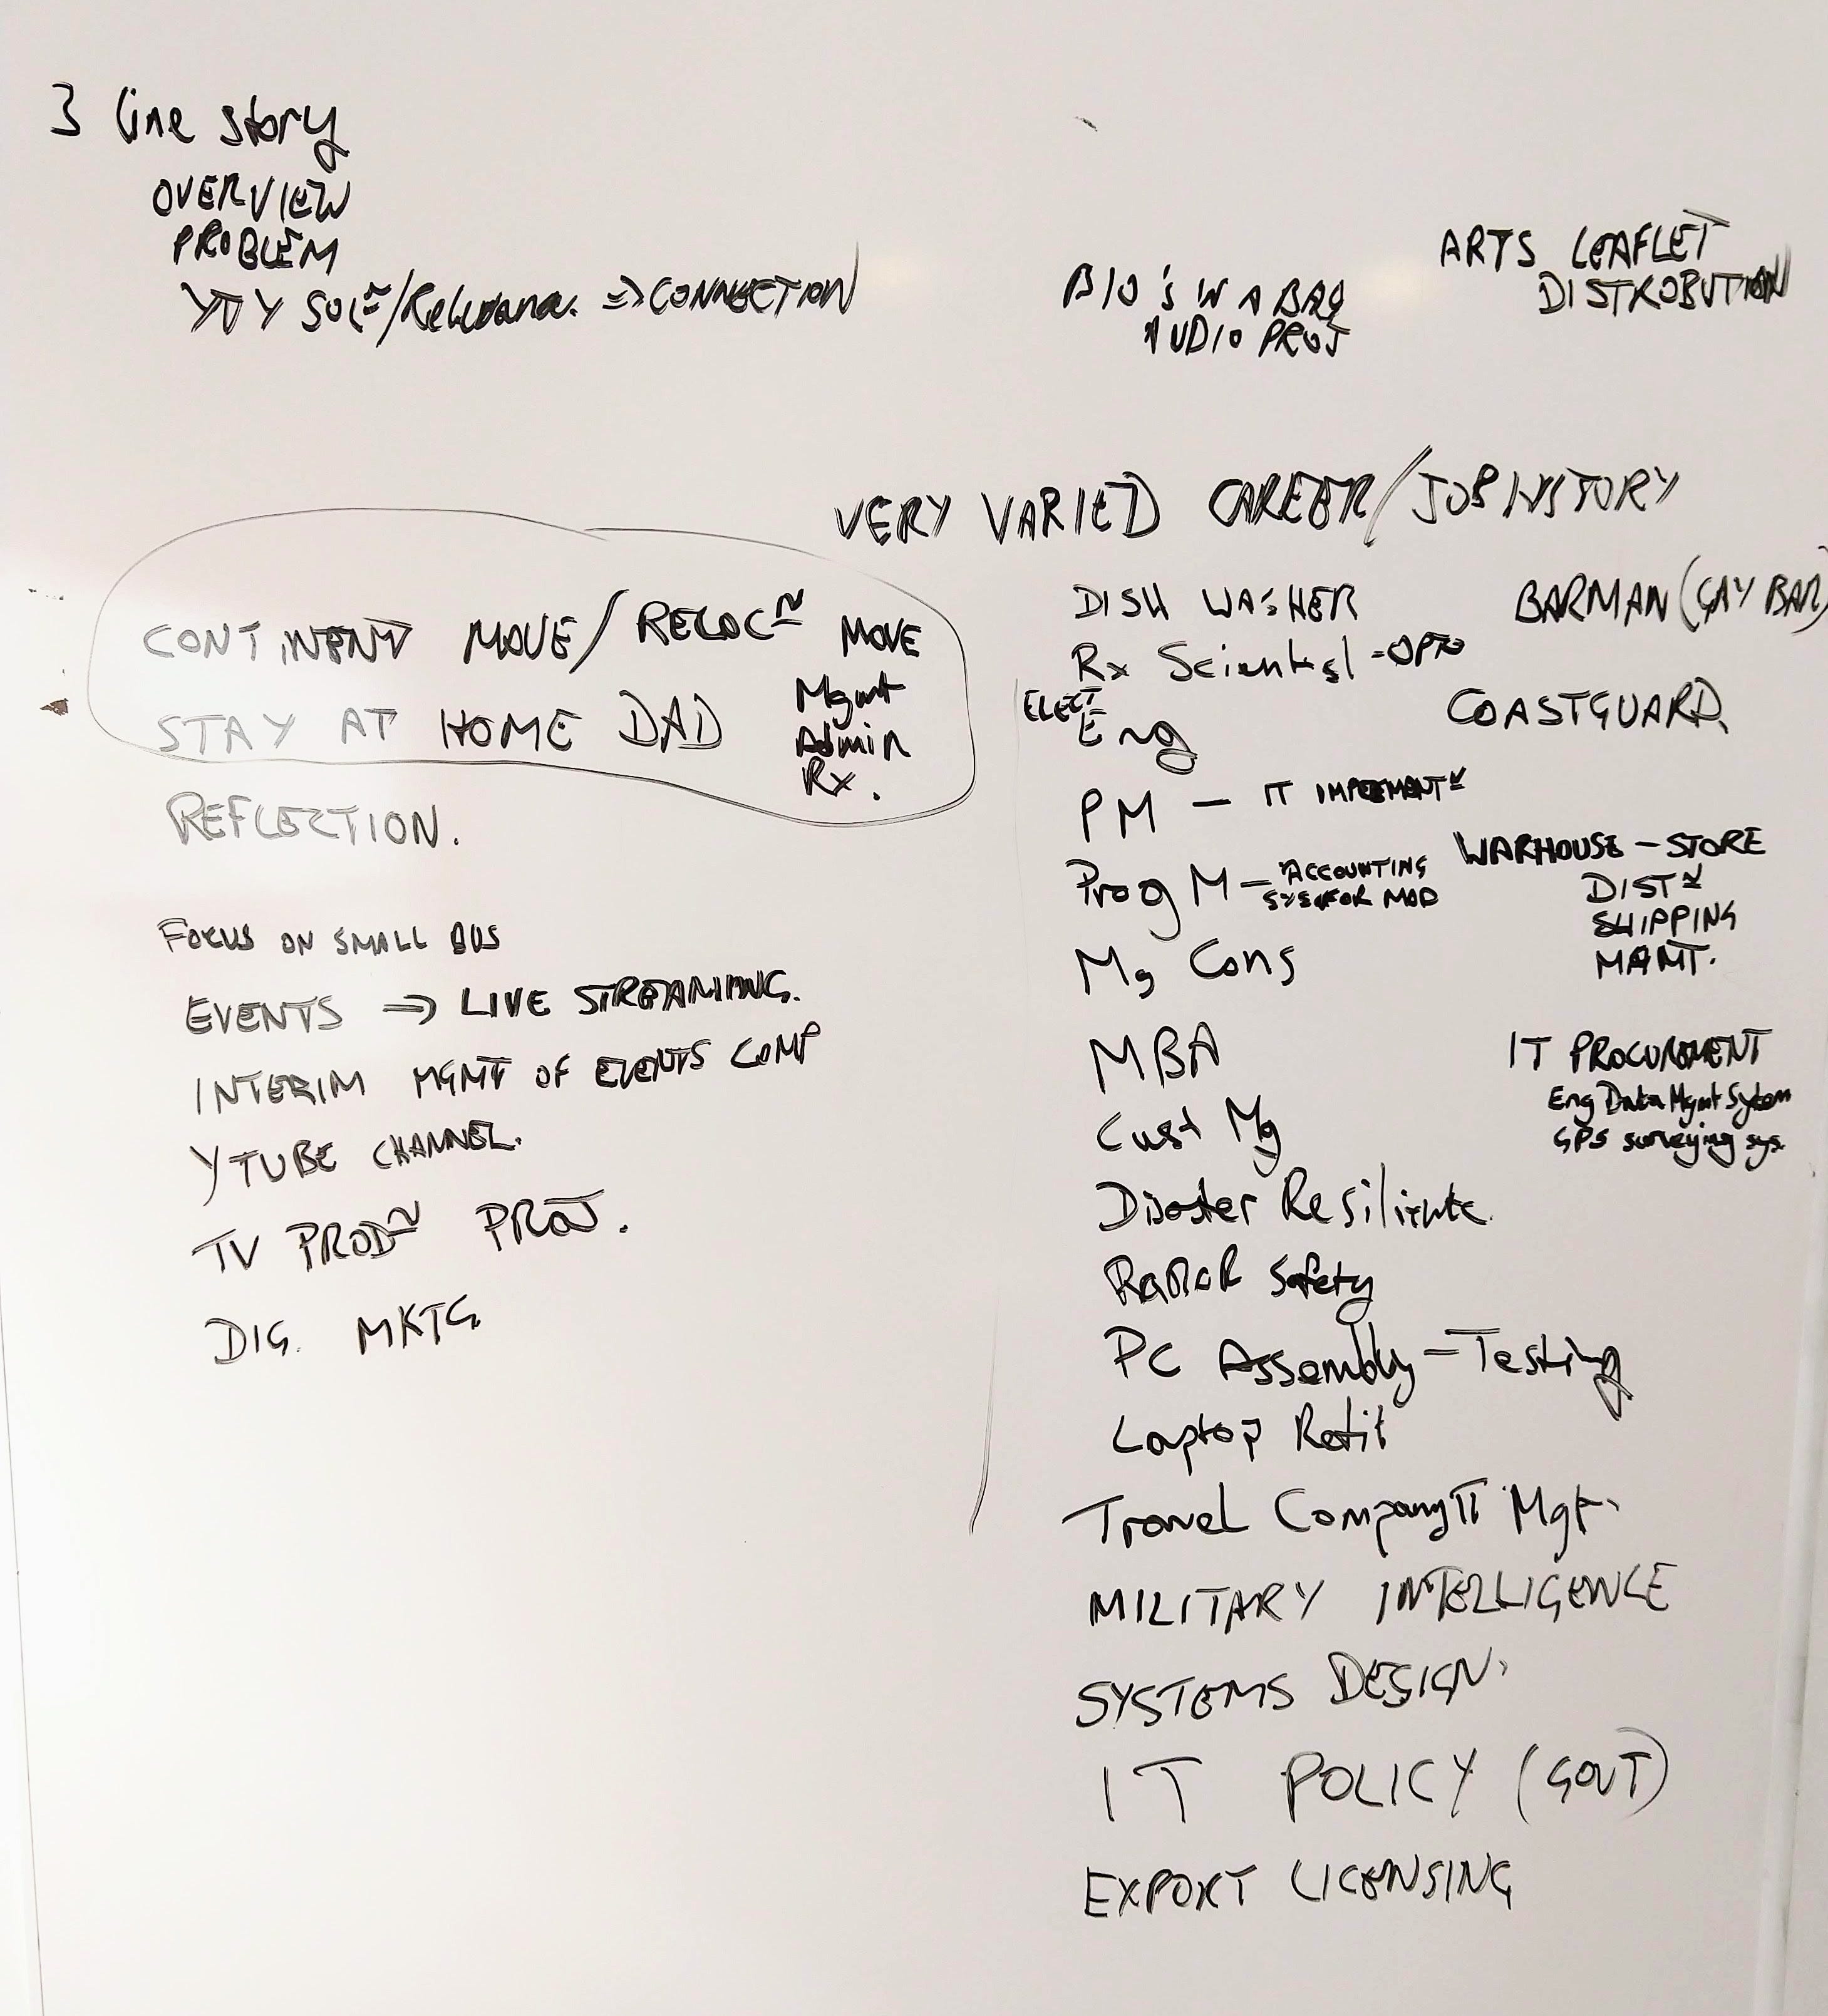 3 line story
OVERVIEW
PROBLEM
YTY SOLⁿ/Relevance. => CONNECTION
BIO'S IN A BAG
AUDIO PROJ
ARTS LEAFLET
DISTROBUTION
VERY VARIED CAREER/JOB HISTORY
CONTINENT MOVE/RELOCⁿ MOVE
Mgmt
STAY AT HOME DAD
Admin
Rx.
REFLECTION.
FOCUS ON SMALL BUS
EVENTS => LIVE STREAMING.
INTERIM MGMT OF EVENTS COMP
YTUBE CHANNEL.
TV PRODⁿ PROJ.
DIG. MKTG
DISH WASHER
Rx Scientist - OPTO
ELECT
Eng
PM - IT IMPLEMENTⁿ
Prog M - ACCOUNTING
SYS FOR MOD
Mg Cons
MBA
Cust Mg
Disaster
RADAR Safety
PC Assembly - Testing
Laptop
Travel Company IT Mgt.
MILITARY INTELLIGENCE
SYSTEMS DESIGN.
IT POLICY (GOVT)
EXPORT LICENSING
BARMAN (GAY BAR)
COASTGUARD.
WARHOUSE - STORE
DISTⁿ
SHIPPING
MAMT.
IT PROCUREMENT
Eng Data Mgmt Sytem
GPS surveying sys.